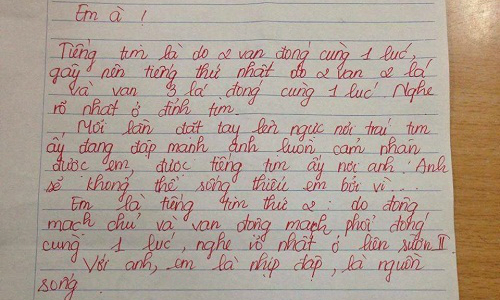 Em à !
Tiếng tim là do 2 van đóng cùng 1 lúc,
gây nên tiếng thứ nhất do 2 van 2 lá
và van 3 lá đóng cùng 1 lúc. Nghe
rõ nhất ở đỉnh tim.
Mỗi lần đặt tay lên ngực nơi trái tim
ấy đang đập mạnh anh luôn cảm nhận
được em, được tiếng tim ấy nơi anh. Anh
sẽ không thể sống thiếu em bởi vì...
Em là tiếng tim thứ 2 : do đóng
mạch chủ và van động mạch phổi đóng
cùng 1 lúc, nghe rõ nhất ở liên sườn II
Với anh, em là nhịp đập, là nguồn
sống